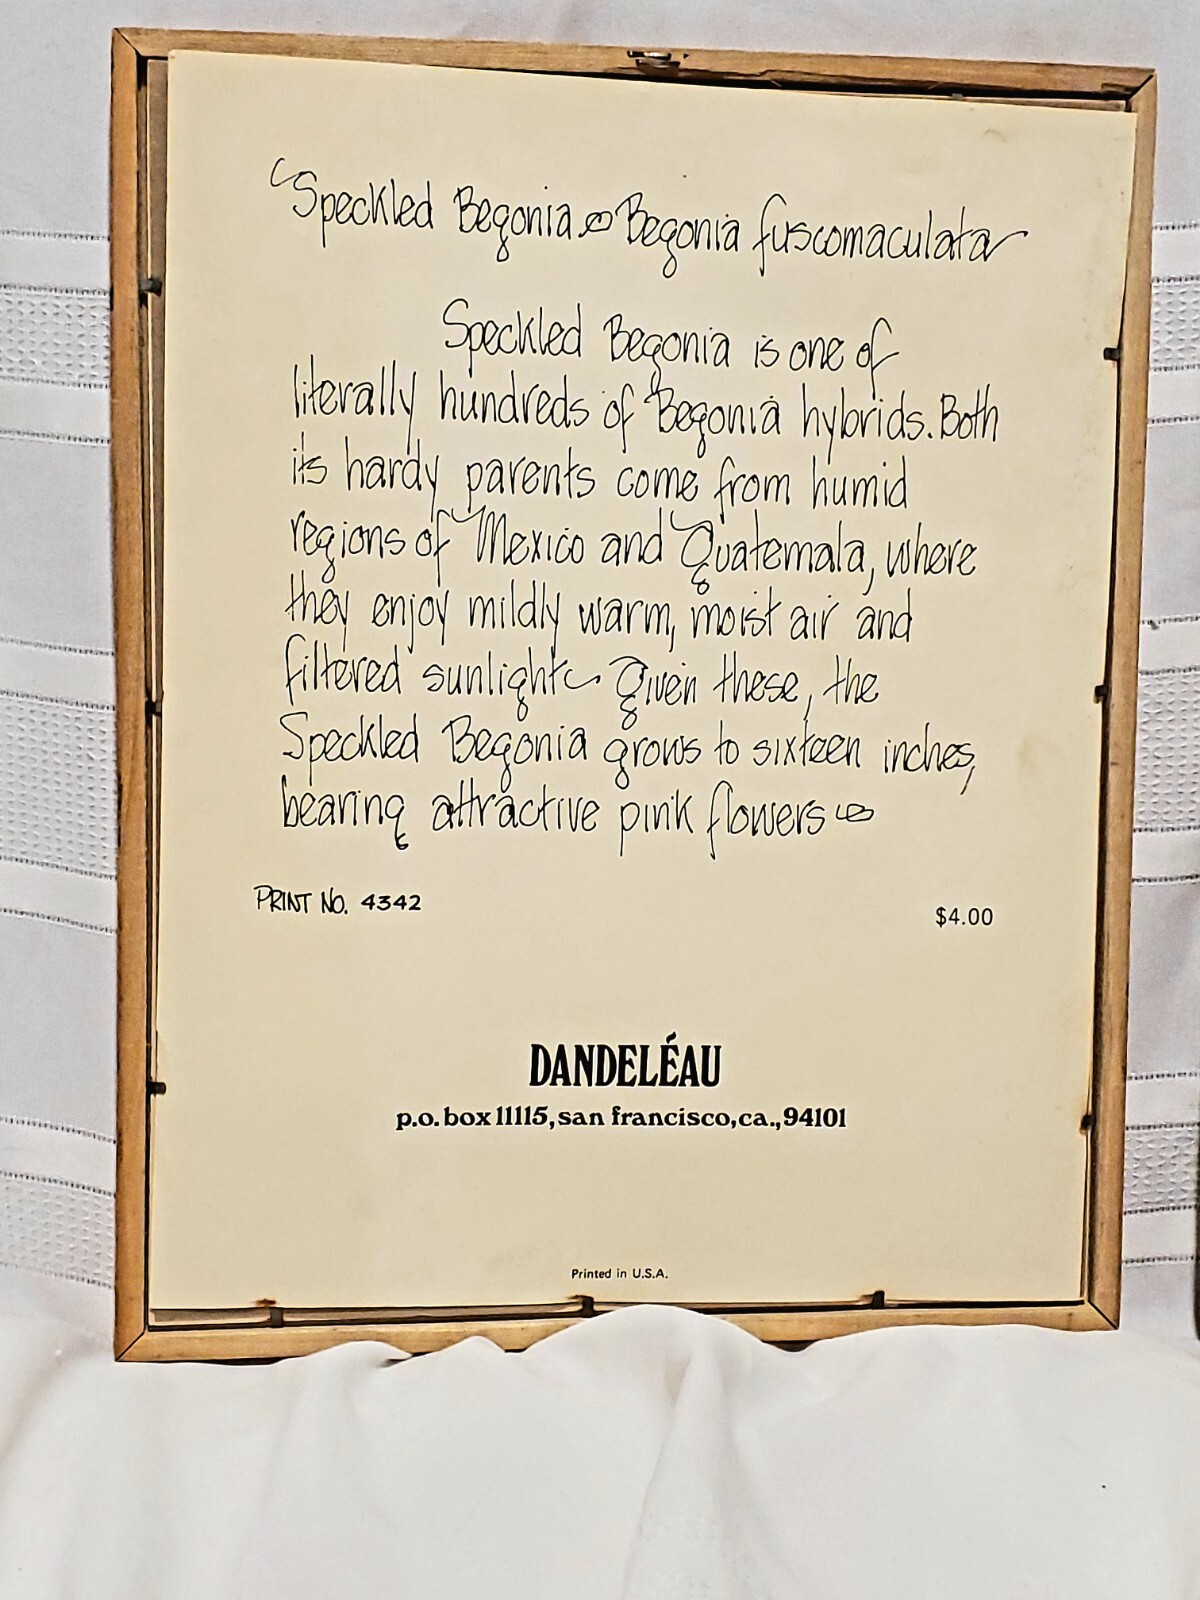 Speckled Begonia Begonia fuscomaculata
Speckled Begonia is one of
literally hundreds of Begonia hybrids. Both
its hardy parents come from humid
regions of Mexico and Guatemala, where
they enjoy mildly warm, moist air and
filtered sunlight Given these, the
Speckled Begonia grows to sixteen inches,
bearing attractive pink flowers
PRINT NO. 4342
$4.00
DANDELÉAU
p.o. box 11115, san francisco, ca., 94101
Printed in U.S.A.